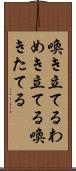 喚き立てるわ
めき立てる喚
きたてる